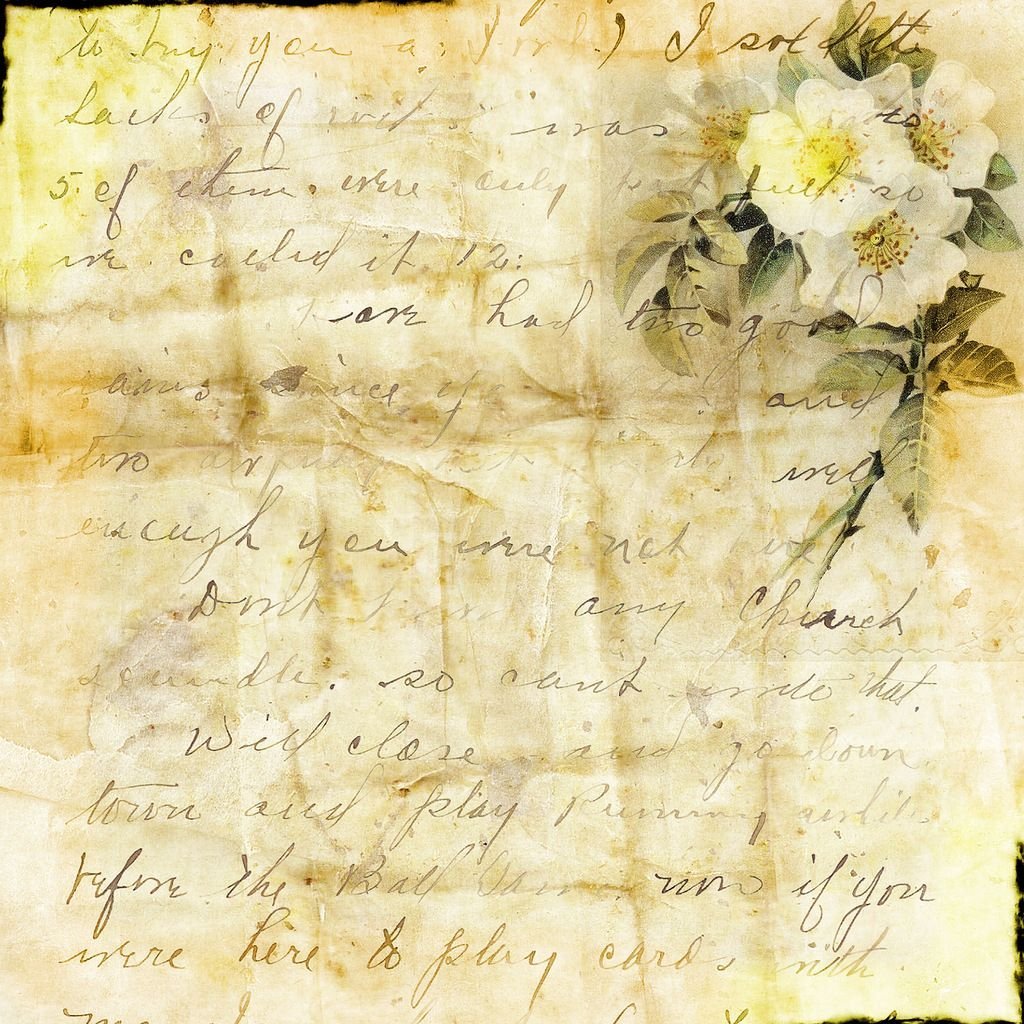 to buy you a I sold the
Sacks of was so
5 of them were only part full so
we called it 12.
have had two good
rains since and
two well
enough you were not here
Dont any Church
scandle. so cant write that.
Will close and go down
town and play Rummy awhile
before the Ball Game now if you
were here to play cards with